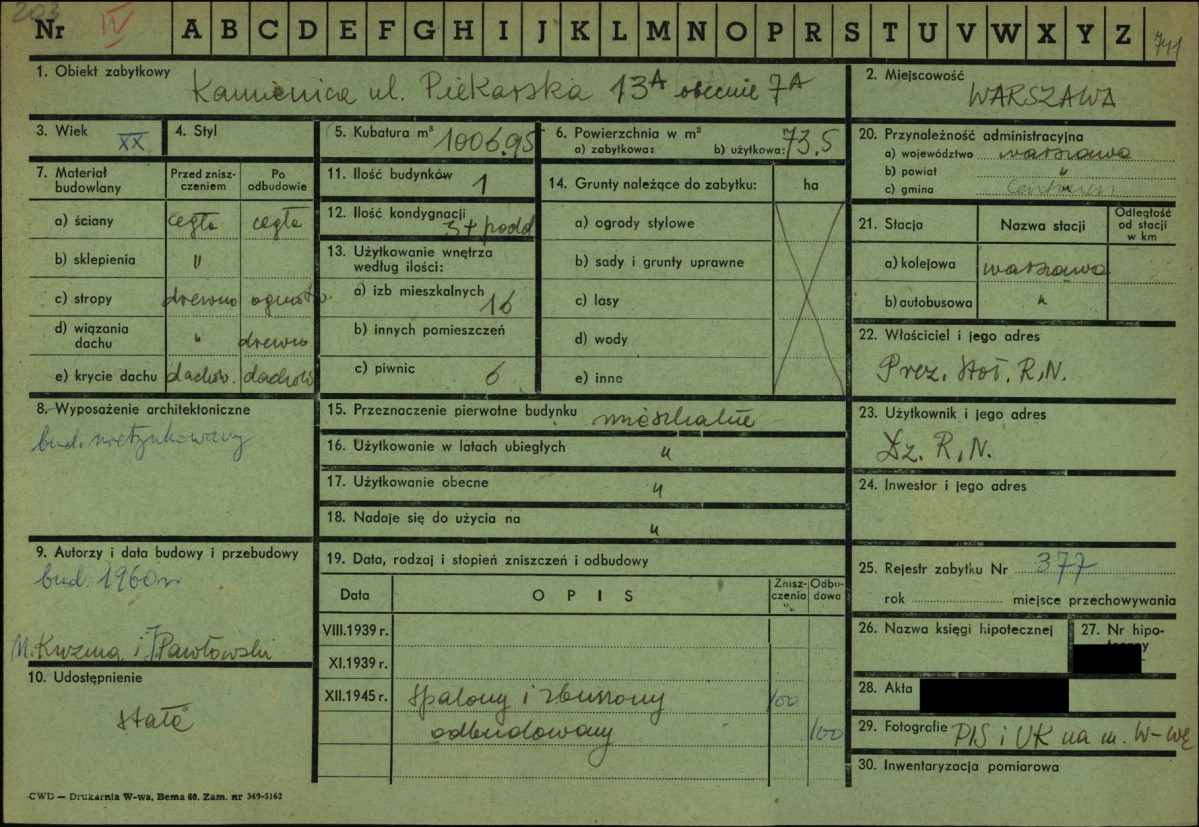 203
Nr IV A B C D E F G H I J K L M N O P R S T U V W X Y Z 741
1. Obiekt zabytkowy Kamienica ul. Piekarska 13A obecnie 7A
2. Miejscowość WARSZAWA
3. Wiek XX
4. Styl
5. Kubatura m³ 1006.95
6. Powierzchnia w m²
a) zabytkowa: b) użytkowa: 73,5
20. Przynależność administracyjna
a) województwo warszawa
b) powiat "
c) gmina
7. Materiał budowlany
Przed zniszczeniem
Po odbudowie
a) ściany cegła cegła
b) sklepienia "
c) stropy drewno ogniotr.
d) wiązania dachu " drewno
e) krycie dachu dachów. dachów
11. Ilość budynków 1
12. Ilość kondygnacji 3+podd
13. Użytkowanie wnętrza według ilości:
a) izb mieszkalnych 16
b) innych pomieszczeń
c) piwnic 6
14. Grunty należące do zabytku: ha
a) ogrody stylowe
b) sady i grunty uprawne
c) lasy
d) wody
e) inne
21. Stacja Nazwa stacji Odległość od stacji w km
a) kolejowa warszawa
b) autobusowa "
22. Właściciel i jego adres
Prez. Stoł. R.N.
8. Wyposażenie architektoniczne
bud. nietynkowany
15. Przeznaczenie pierwotne budynku mieszkalne
16. Użytkowanie w latach ubiegłych "
17. Użytkowanie obecne "
18. Nadaje się do użycia na "
23. Użytkownik i jego adres
Dz. R.N.
24. Inwestor i jego adres
9. Autorzy i data budowy i przebudowy
bud. 1960 r
M. Kuzma i J Pawłowski
10. Udostępnienie
stałe
19. Data, rodzaj i stopień zniszczeń i odbudowy
Data OPIS Zniszczenia % Odbudowa
VIII.1939 r.
XI.1939 r.
XII.1945 r. spalony i zburzony 100
odbudowany 100
25. Rejestr zabytku Nr 377
rok miejsce przechowywania
26. Nazwa księgi hipotecznej
27. Nr hipo-
28. Akta
29. Fotografie PIS i UK na m. W-wę
30. Inwentaryzacja pomiarowa
CWD — Drukarnia W-wa, Bema 60. Zam. nr 349-5162